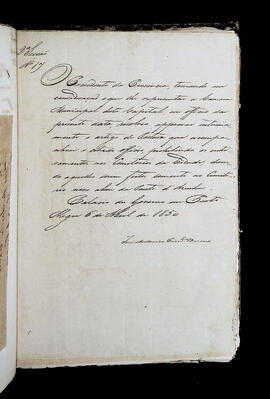 2ª Secção
Nº 17
O Presidente da Provincia, tomando em
consideração o que lhe representou a Camara
Municipal desta Capital em officio da
presente data resolve approvar interina
mente o artigo de Postura que acompa
nhou o citado officio, prohibindo os enter
ramentos no Cemiterio da Cidade, deven
do aquelles serem feitos somente no Cemite
rio novo alem da Santa
Palacio do Governo em Porto
Alegre 6 de Abril de 1850